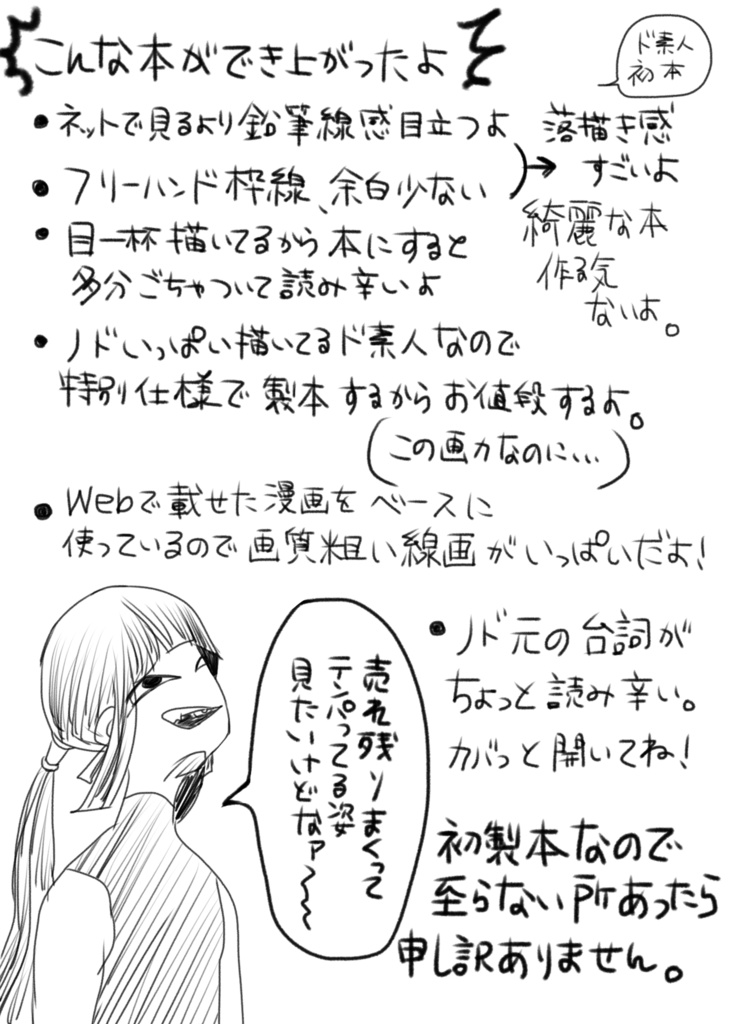 こんな本ができ上がったよ
ド素人
初本
・ネットで見るより鉛筆線感目立つよ
・フリーハンド枠線、余白少ない
→落描き感
すごいよ
綺麗な本
作る気
ないよ。
・目一杯描いてるから本にすると
多分ごちゃついて読み辛いよ
・ノドいっぱい描いてるド素人なので
特別仕様で製本するからお値段するよ。
(この画力なのに...)
・Webで載せた漫画をベースに
使っているので画質粗い線画がいっぱいだよ!
・ノド元の台詞が
ちょっと読み辛い。
カバっと開いてね!
売れ残りまくって
テンパってる姿
見たいけどなァ〜〜
初製本なので
至らない所あったら
申し訳ありません。